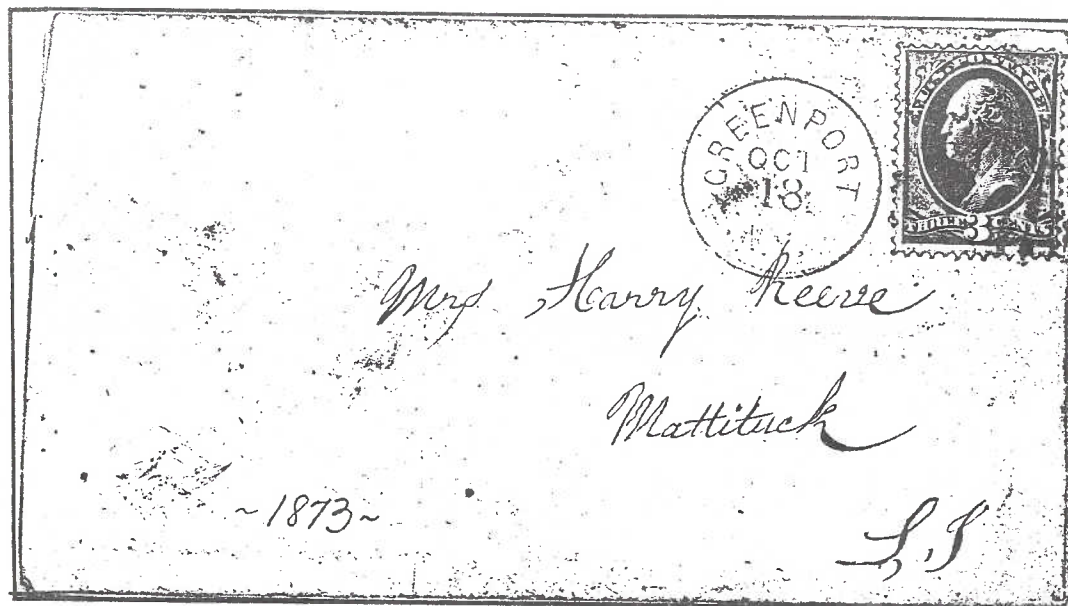 GREENPORT
OCT
18
U.S. POSTAGE
THREE 3 CENTS
Mrs Harry Reeve
Mattituck
L, I
~1873~